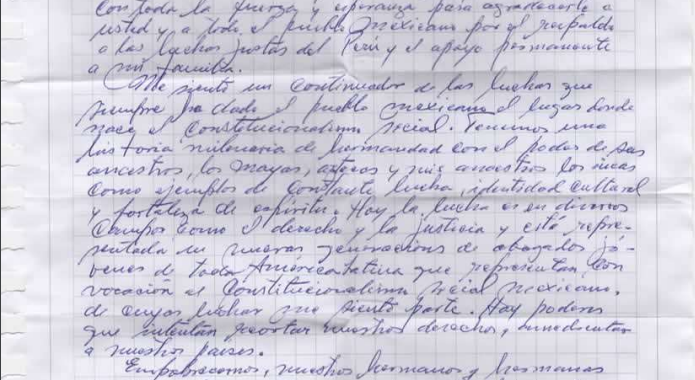 con toda la fuerza y esperanza para agradecerle a
usted y a todo el pueblo mexicano por el respaldo
a las luchas justas del Perú y el apoyo permanente
a mi familia.
Me siento un continuador de las luchas que
siempre ha dado el pueblo mexicano el lugar donde
nace el Constitucionalismo social. Tenemos una
historia milenaria de hermandad con el poder de sus
ancestros, los mayas, aztecas y mis ancestros los incas
como ejemplos de constante lucha, identidad cultural
y fortaleza de espíritu. Hoy la lucha es en diversos
campos como el derecho y la justicia y está repre-
sentada en nuevas generaciones de abogados jó-
venes de toda América latina que representan con
vocación al Constitucionalismo social mexicano,
de cuyas luchas me siento parte. Hay poderes
que intentan recortar nuestros derechos,
a nuestros países.
Empobrecernos, nuestros hermanos y hermanas